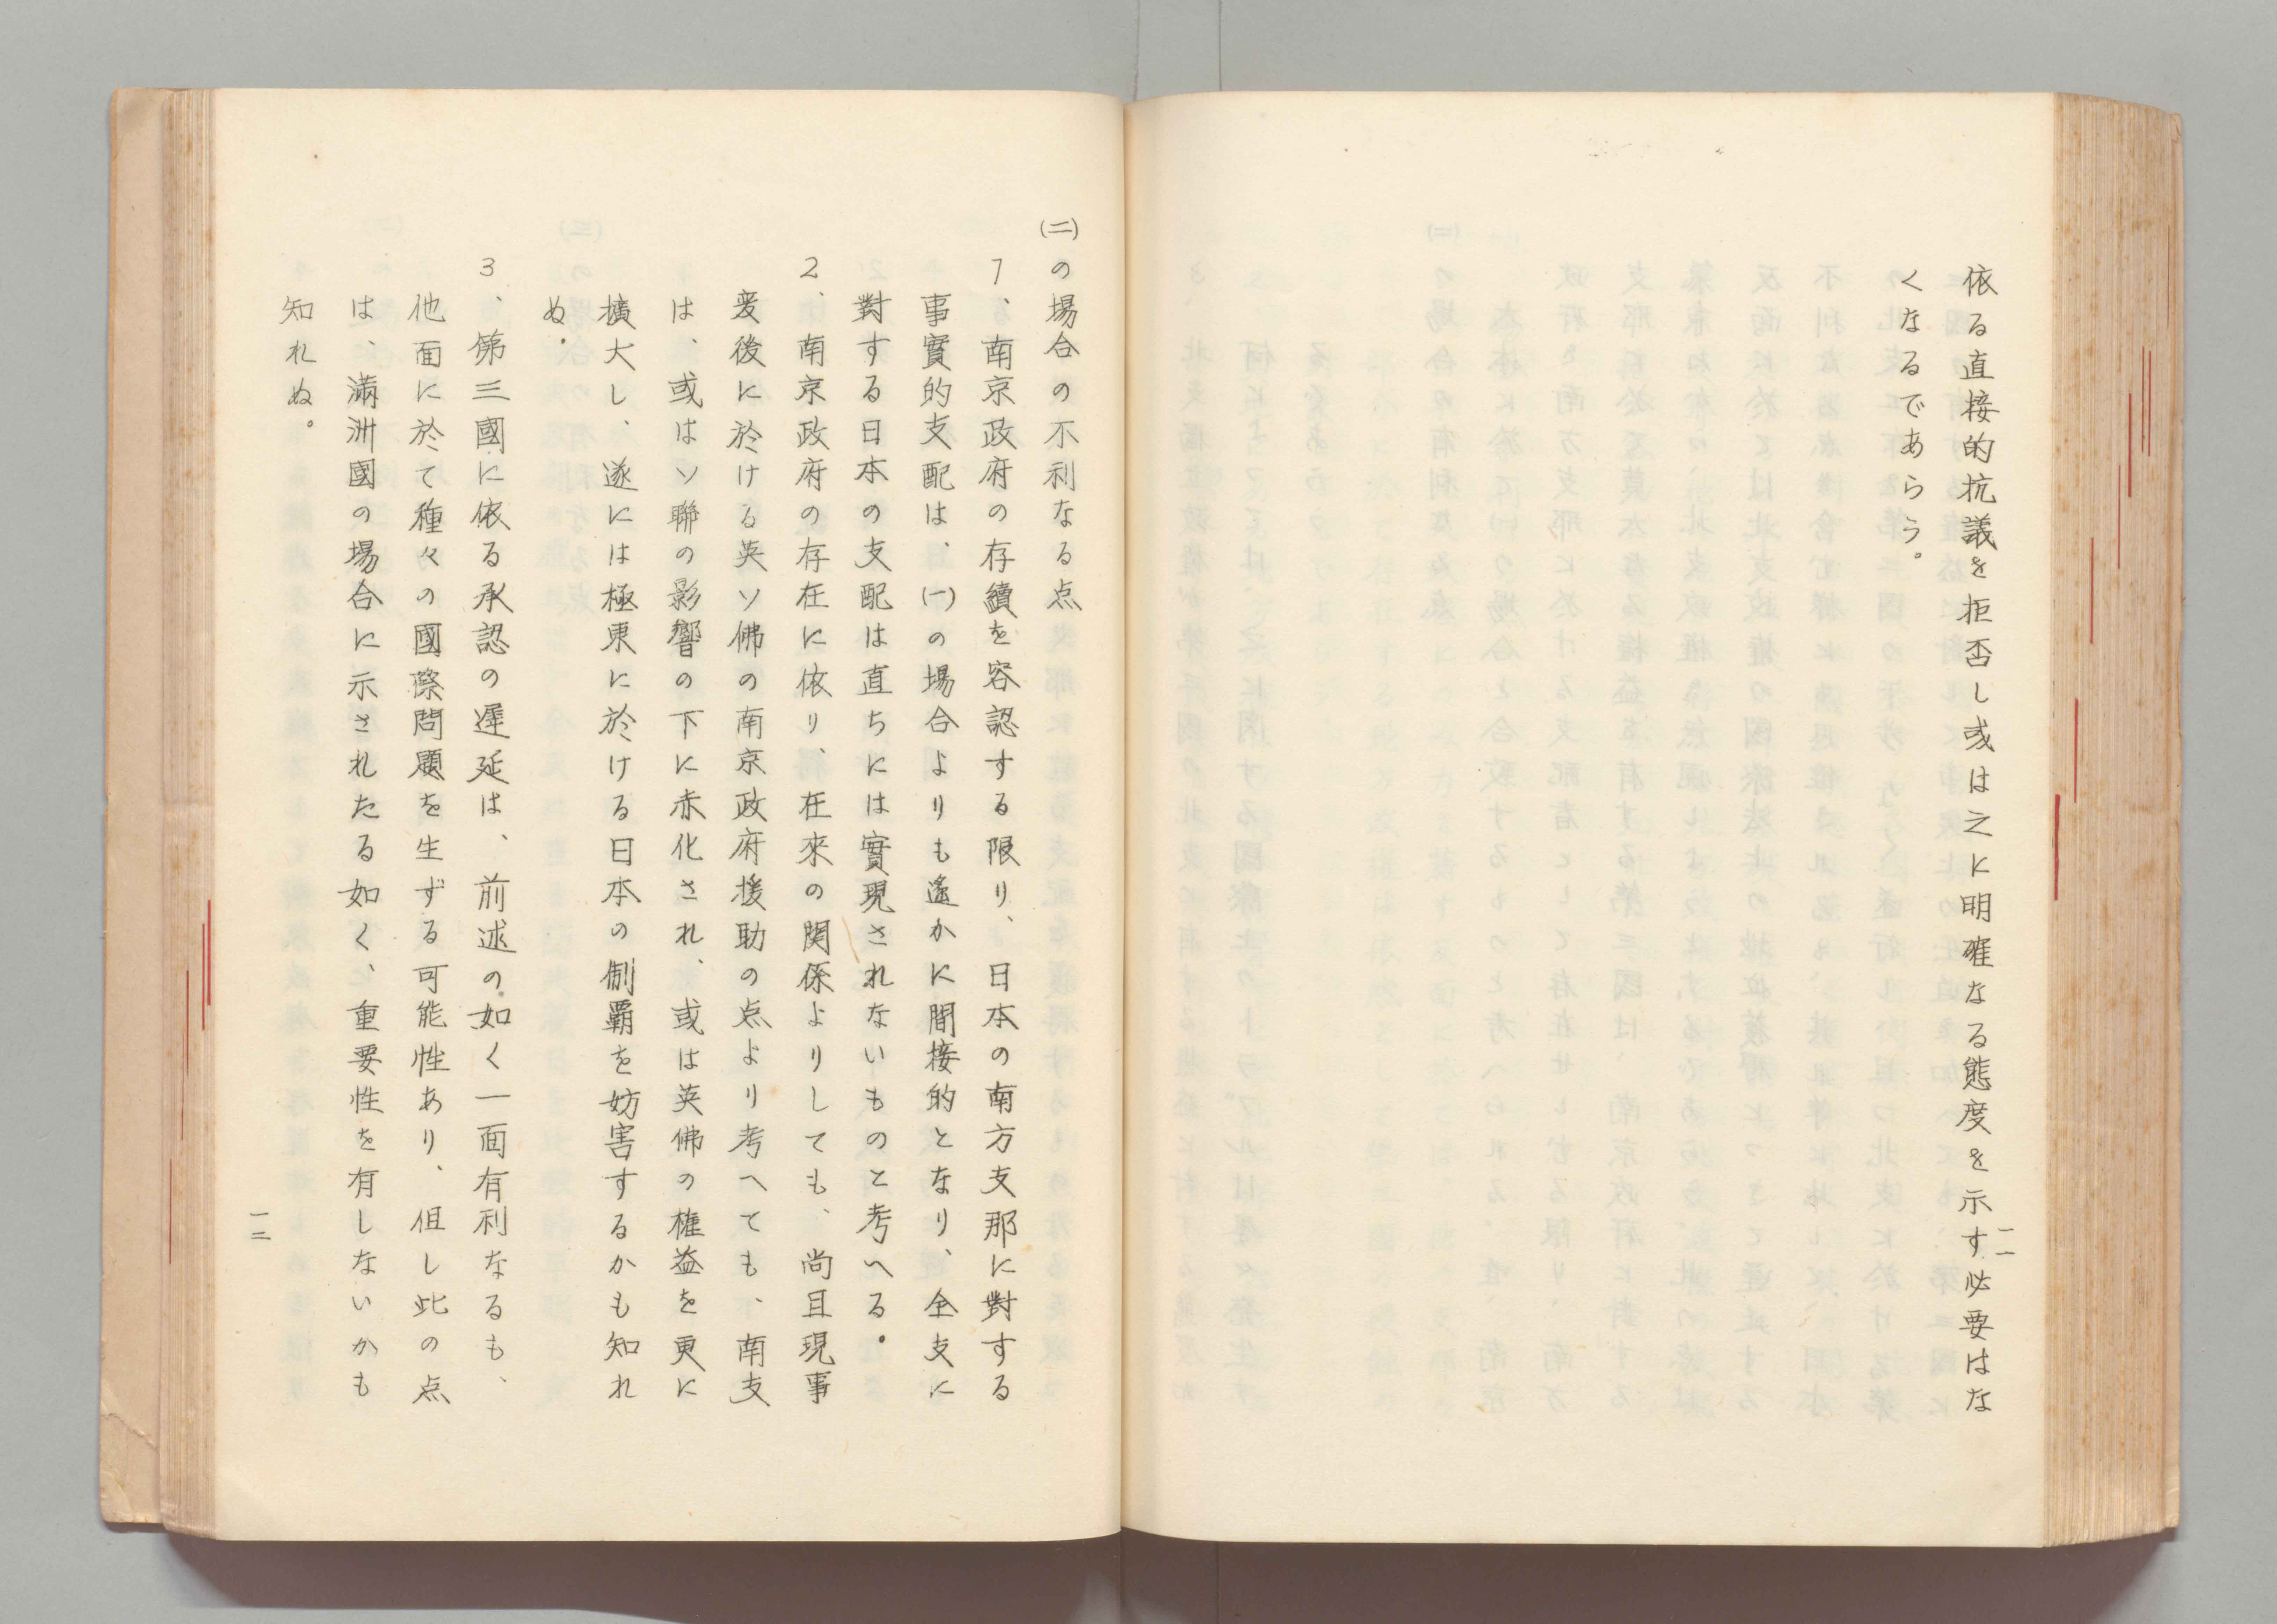 依る直接的抗議を拒否し或は之に明確なる態度を示す必要はな
くなるであらう。
一一
(二)の場合の不利なる点
1、南京政府の存續を容認する限り、日本の南方支那に對する
事實的支配は、(一)の場合よりも遙かに間接的となり、全支に
對する日本の支配は直ちには實現されないものと考へる。
2、南京政府の存在に依り、在來の関係よりしても、尚且現事
変後に於ける英ソ佛の南京政府援助の点より考へても、南支
は、或はソ聯の影響の下に赤化され、或は英佛の権益を更に
擴大し、遂には極東に於ける日本の制覇を妨害するかも知れ
ぬ。
3、第三國に依る承認の遲延は、前述の如く一面有利なるも、
他面に於て種々の國際問題を生ずる可能性あり、但し此の点
は、滿洲國の場合に示されたる如く、重要性を有しないかも
知れぬ。
一二